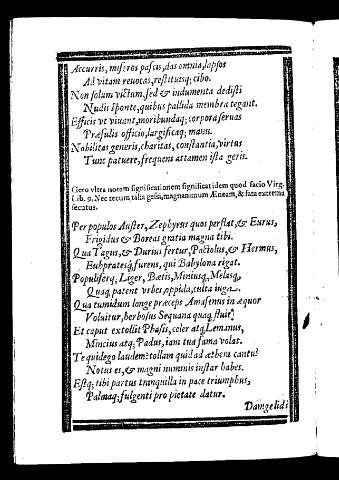 Accurris, miseros pascis, das omnia, lapsos
Ad vitam reuocas, restituisq; cibo.
Non solum victum, sed & indumenta dedisti
Nudis sponte, quibus pallida membra tegant.
Efficis vt viuant, moribundaq; corpora seruas
Præsulis officio, largificaq; manu.
Nobilitas generis, charitas, constantia, virtus
Tunc patuere, frequens attamen ista geris.
Gero vltra notam significationem significat idem quod facio Virg.
Lib. 9. Nec tecum talia gessi, magnanimum Æneam, & fata extrema
secutus.
Per populos Auster, Zephyrus quos perflat, & Eurus,
Frigidus & Boreas gratia magna tibi.
Qua Tagus, & Durius fertur, Pactolus, & Hermus,
Euphratesq; furens, qui Babylona rigat.
Populiferq; Liger, Bætis, Miniusq, Melasq,
Quaq patent vrbes, oppida, culta iuga.
Qua tumidum longe præceps Amasenus in æquor
Voluitur, herbosus Sequana quaq fluit,
Et caput extollit Phasis, celer atq Lemanus,
Mincius atq; Padus, iam tua fama volat.
Te quidego laudem? tollam quid ad æthera cantu?
Notus es, & magni numinis instar habes.
Estq; tibi partus tranquilla in pace triumphus,
Palmaq; fulgenti pro pietate datur.
Damgelidi